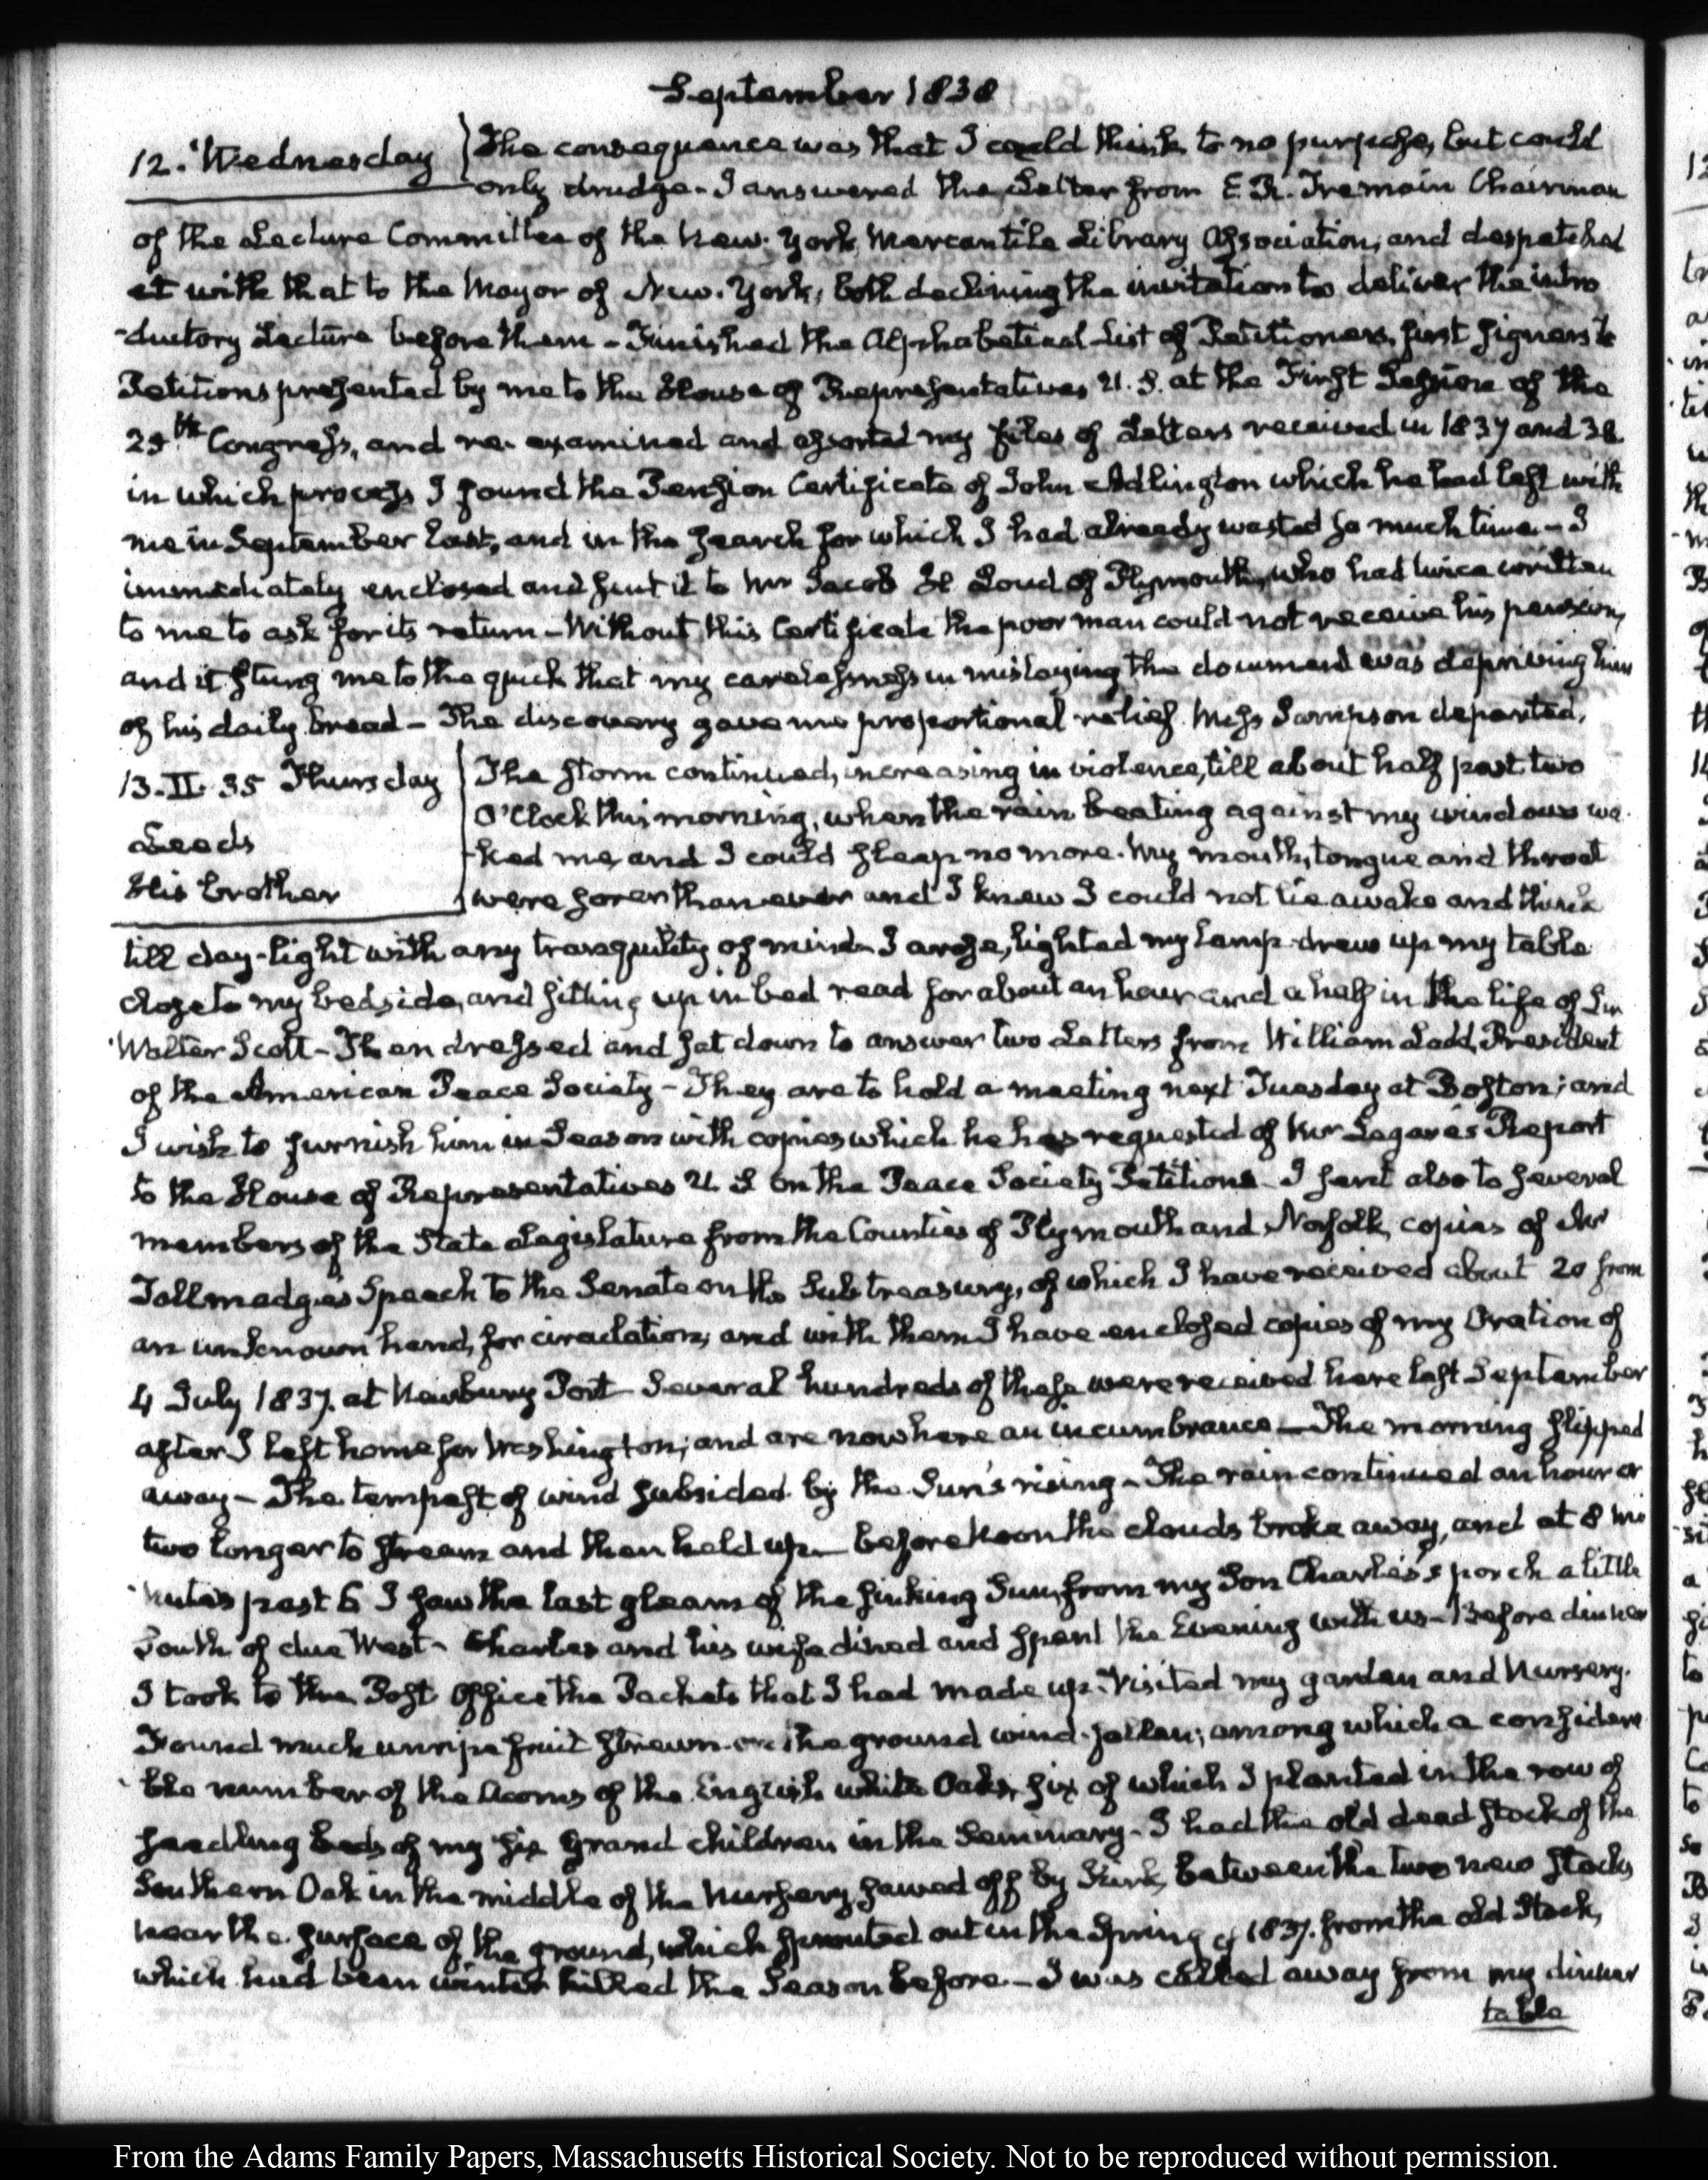 September 1838
12. Wednesday
The consequence was that I could think to no purpose, but could
only drudge - I answered the Letter from E. R. Tremain Chairman
of the Lecture Committee of the New-York Mercantile Library Association, and despatched
it with that to the Mayor of New-York, both declining the invitation to deliver the intro
-ductory Lecture before them - Finished the Alphabetical List of Petitioners, first signers to
Petitions presented by me to the House of Representatives U. S. at the First Session of the
25th Congress, and re-examined and assorted my files of Letters received in 1837 and 38
in which process I found the Pension Certificate of John Adlington which he had left with
me in September last, and in the search for which I had already wasted so much time - I
immediately enclosed and sent it to Mr Jacob H Loud of Plymouth, who had twice written
to me to ask for its return - Without this Certificate the poor man could not receive his pension,
and it stung me to the quick that my carelessness in mislaying the document was depriving him
of his daily bread - The discovery gave me proportional relief. Miss Sampson departed.
13. II. 35 Thursday
Leeds
His brother
The storm continued, increasing in violence, till about half past two
O'Clock this morning, when the rain beating against my windows wa-
-ked me, and I could sleep no more. My mouth, tongue and throat
were sorer than ever and I knew I could not lie awake and think
till day-light with any tranquility of mind - I arose, lighted my lamp drew up my table
close to my bedside, and sitting up in bed read for about an hour and a half in the life of Sir
Walter Scott - Then dressed and sat down to answer two Letters from William Ladd, President
of the American Peace Society - They are to hold a meeting next Tuesday at Boston; and
I wish to furnish him in Season with copies which he has requested of Mr Legaré's Report
to the House of Representatives U. S on the Peace Society Petitions - I sent also to several
members of the State Legislature from the Counties of Plymouth and Norfolk, copies of Mr
Tallmadge's Speech to the Senate on the Sub treasury, of which I have received about 20 from
an unknown hand, for circulation, and with them I have enclosed copies of my Oration of
4 July 1837. at Newbury Port - Several hundreds of these were received here last September
after I left home for Washington; and are now here an incumbrance - The morning slipped
away - The tempest of wind subsided by the Sun's rising - The rain continued an hour or
two longer to stream and then held up - before Noon the clouds broke away, and at 8 mi
-nutes past 6 I saw the last gleams of the sinking Sun, from my Son Charles's porch a little
South of due West - Charles and his wife dined and spent the Evening with us - Before dinner
I took to the Post Office the Packets that I had made up - Visited my garden and Nursery.
Found much unripe fruit strewn on the ground wind-fallen; among which a considera
-ble number of the Acorns of the English white Oaks, six of which I planted in the row of
seedling beds of my six Grand children in the Seminary - I had the old dead stock of the
Southern Oak in the middle of the Nursery, sawed off by Kirk, between the two new stocks
near the surface of the ground, which sprouted out in the Spring of 1837. from the old Stock,
which had been winter killed the Season before - I was called away from my dinner
table
From the Adams Family Papers, Massachusetts Historical Society. Not to be reproduced without permission.